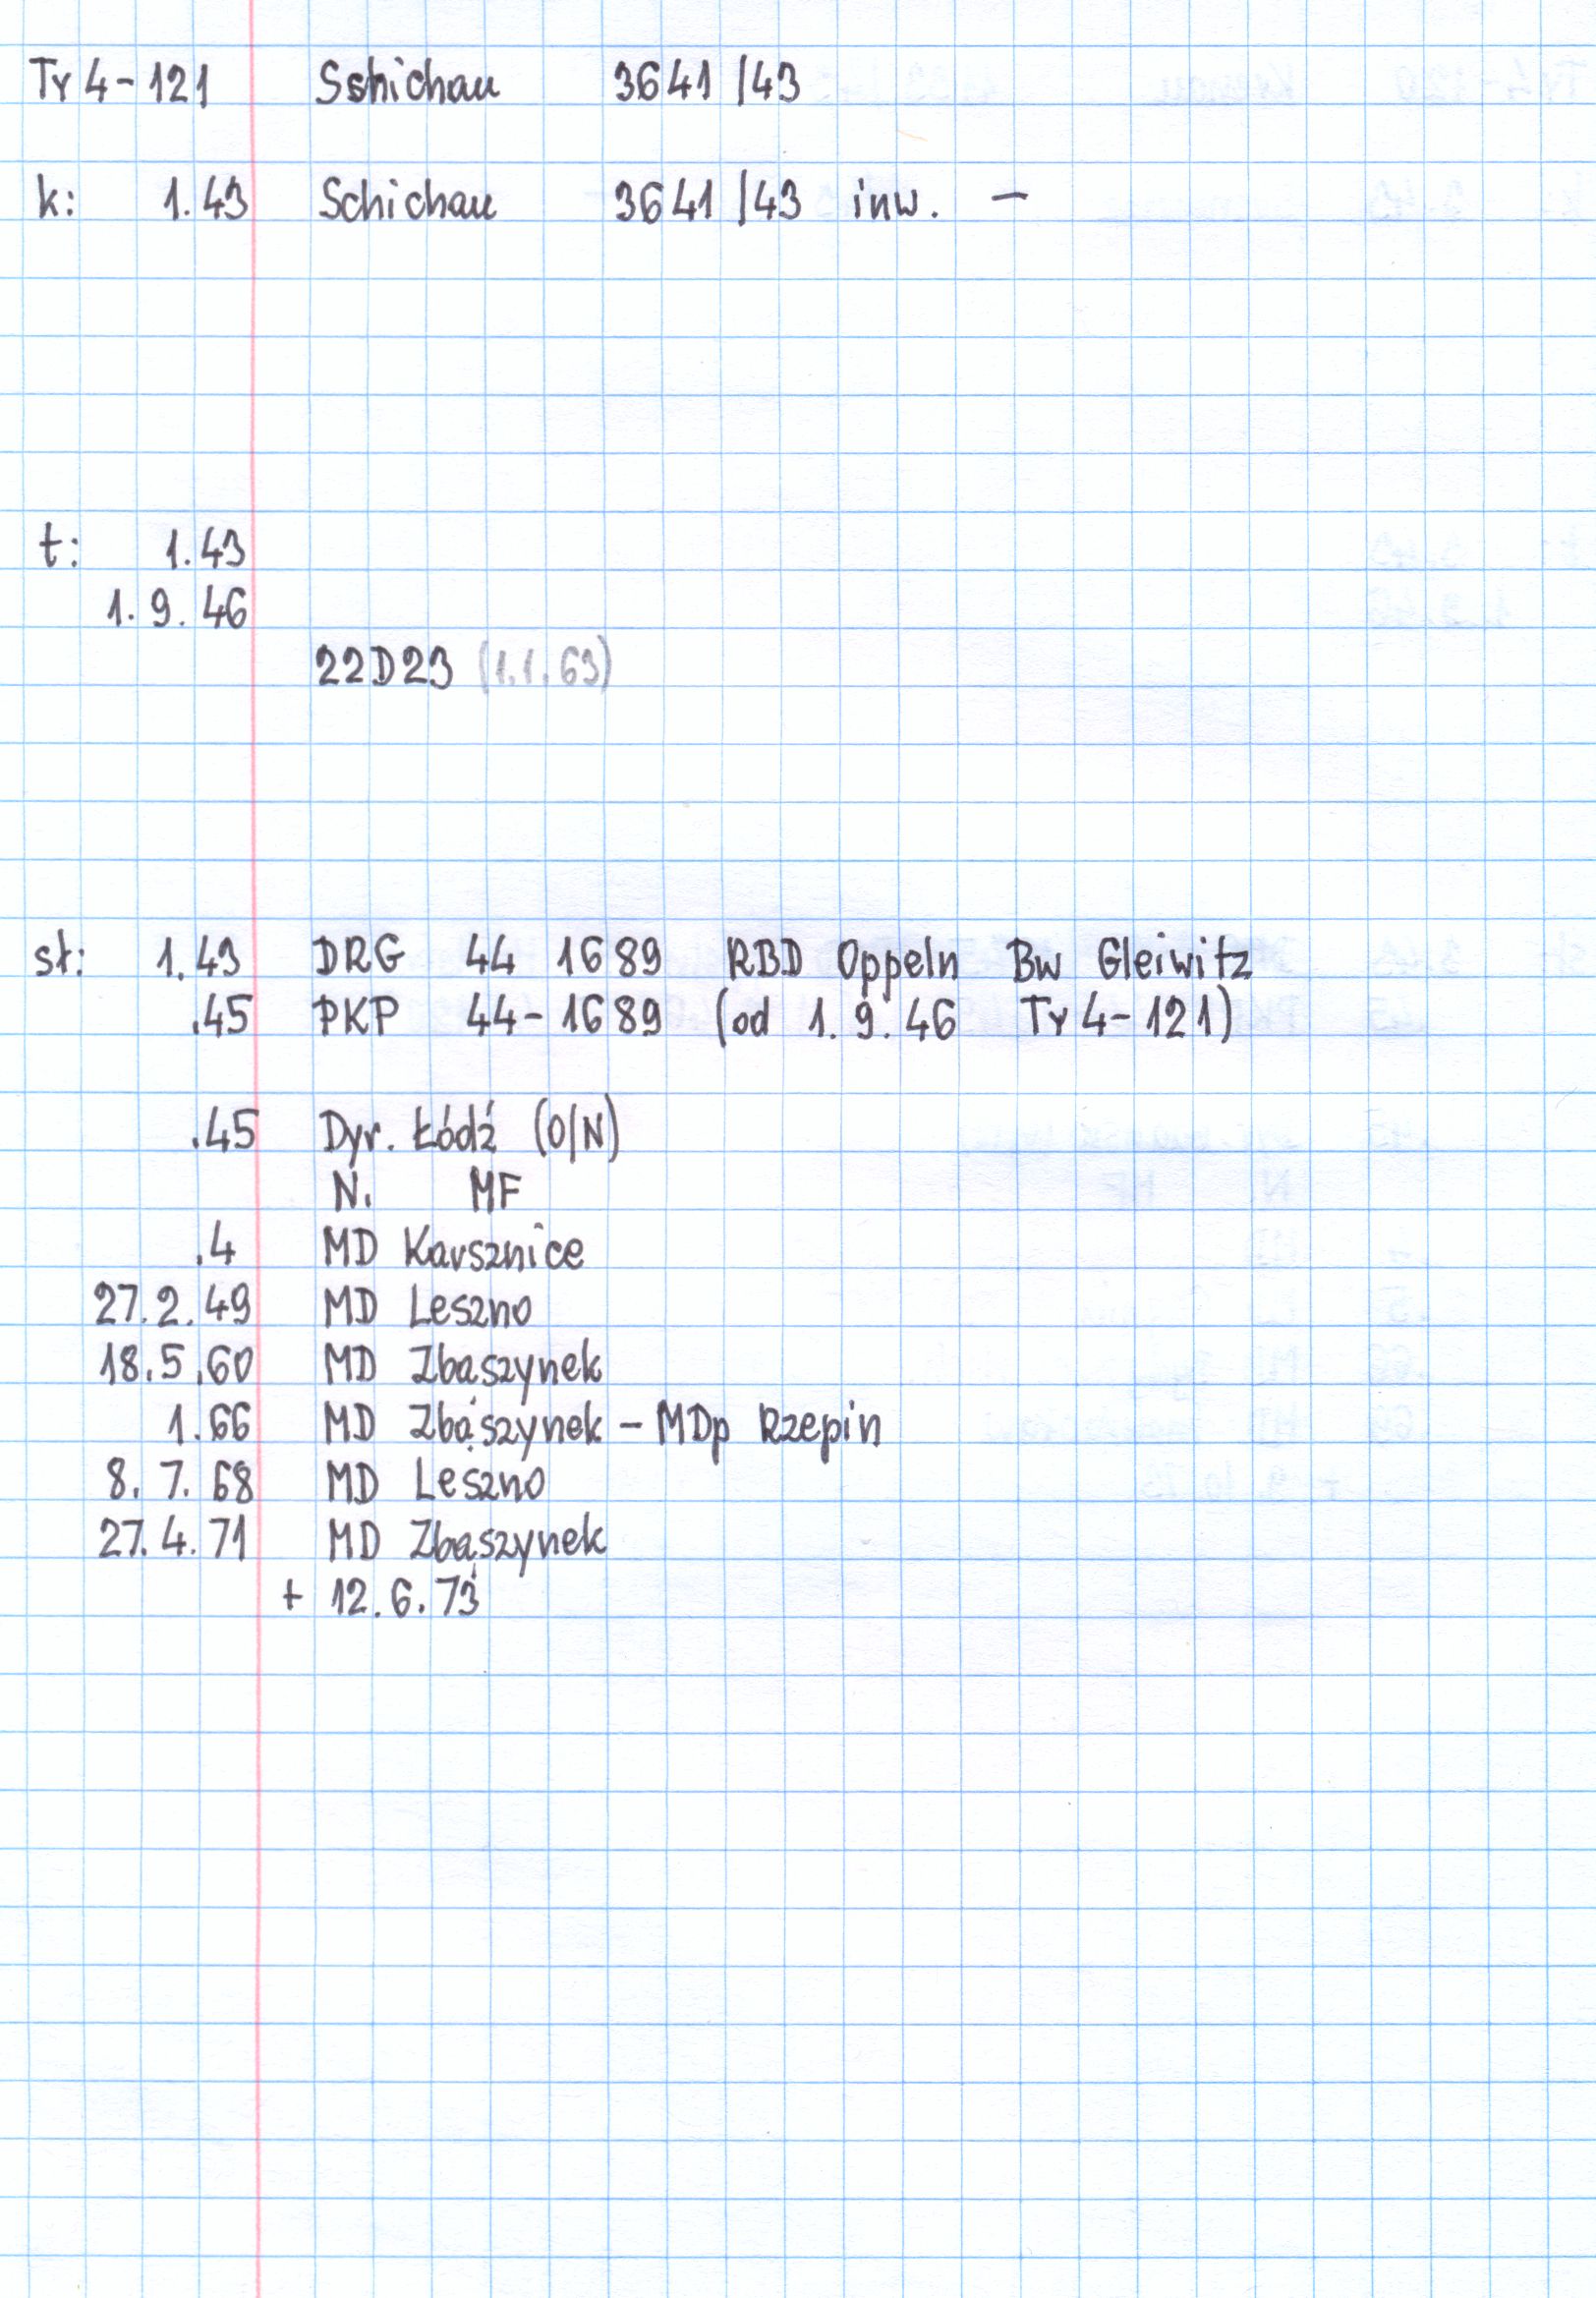 Ty4-121 Schichau 3641/43
k: 1.43 Schichau 3641/43 inw. –
t: 1.43
1.9.46
22D23 (1.1.63)
st: 1.43 DRG 44 1689 RBD Oppeln Bw Gleiwitz
.45 PKP 44-1689 (od 1.9.46 Ty4-121)
.45 Dyr. Łódź (O/N)
N. MF
.4 MD Karsznice
27.2.49 MD Leszno
18.5.60 MD Zbąszynek
1.66 MD Zbąszynek – MDp Rzepin
8.7.68 MD Leszno
27.4.71 MD Zbąszynek
+ 12.6.73